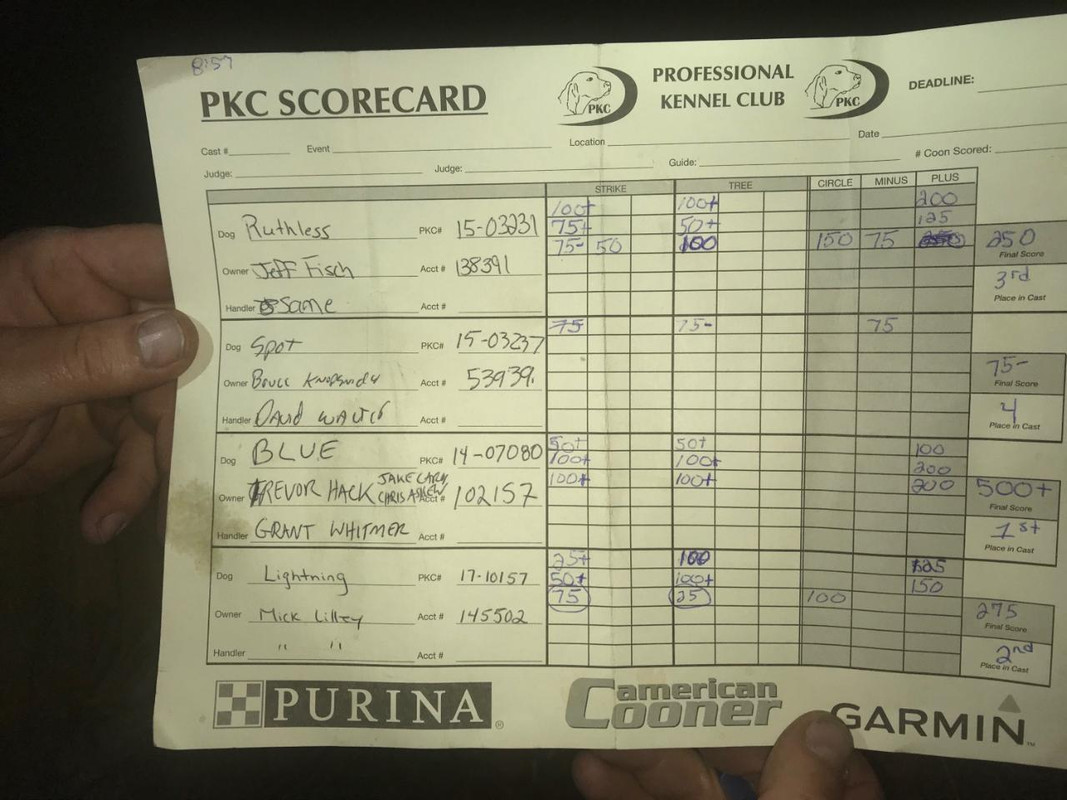 8:57
PKC SCORECARD
PKC
PROFESSIONAL
KENNEL CLUB
PKC
DEADLINE:
Cast # Event Location Date
Judge: Judge: Guide: # Coon Scored:
STRIKE TREE CIRCLE MINUS PLUS
100+ 100+ 200
75+ 50+ 125
Dog Ruthless PKC# 15-03231 75- 50 100 150 75 250
Final Score
Owner Jeff Fisch Acct # 138391
3rd
Place in Cast
Handler Same Acct #
75 75- 75
Dog Spot PKC# 15-03237
75-
Final Score
Owner Acct # 53939
4
Place in Cast
Handler David Acct #
50+ 50+ 100
Dog BLUE PKC# 14-07080 100+ 100+ 200
JAKE
100+ 100+ 200
Owner TREVOR HACK CHRIS Acct # 102157
500+
Final Score
1st
Place in Cast
Handler GRANT WHITMER Acct #
25+ 100 125
Dog Lightning PKC# 17-10157 50+ 100+ 150
75 25 100
Owner Mick Lilley Acct # 145502
275
Final Score
2nd
Place in Cast
Handler " " Acct #
PURINA
american
Cooner
GARMIN